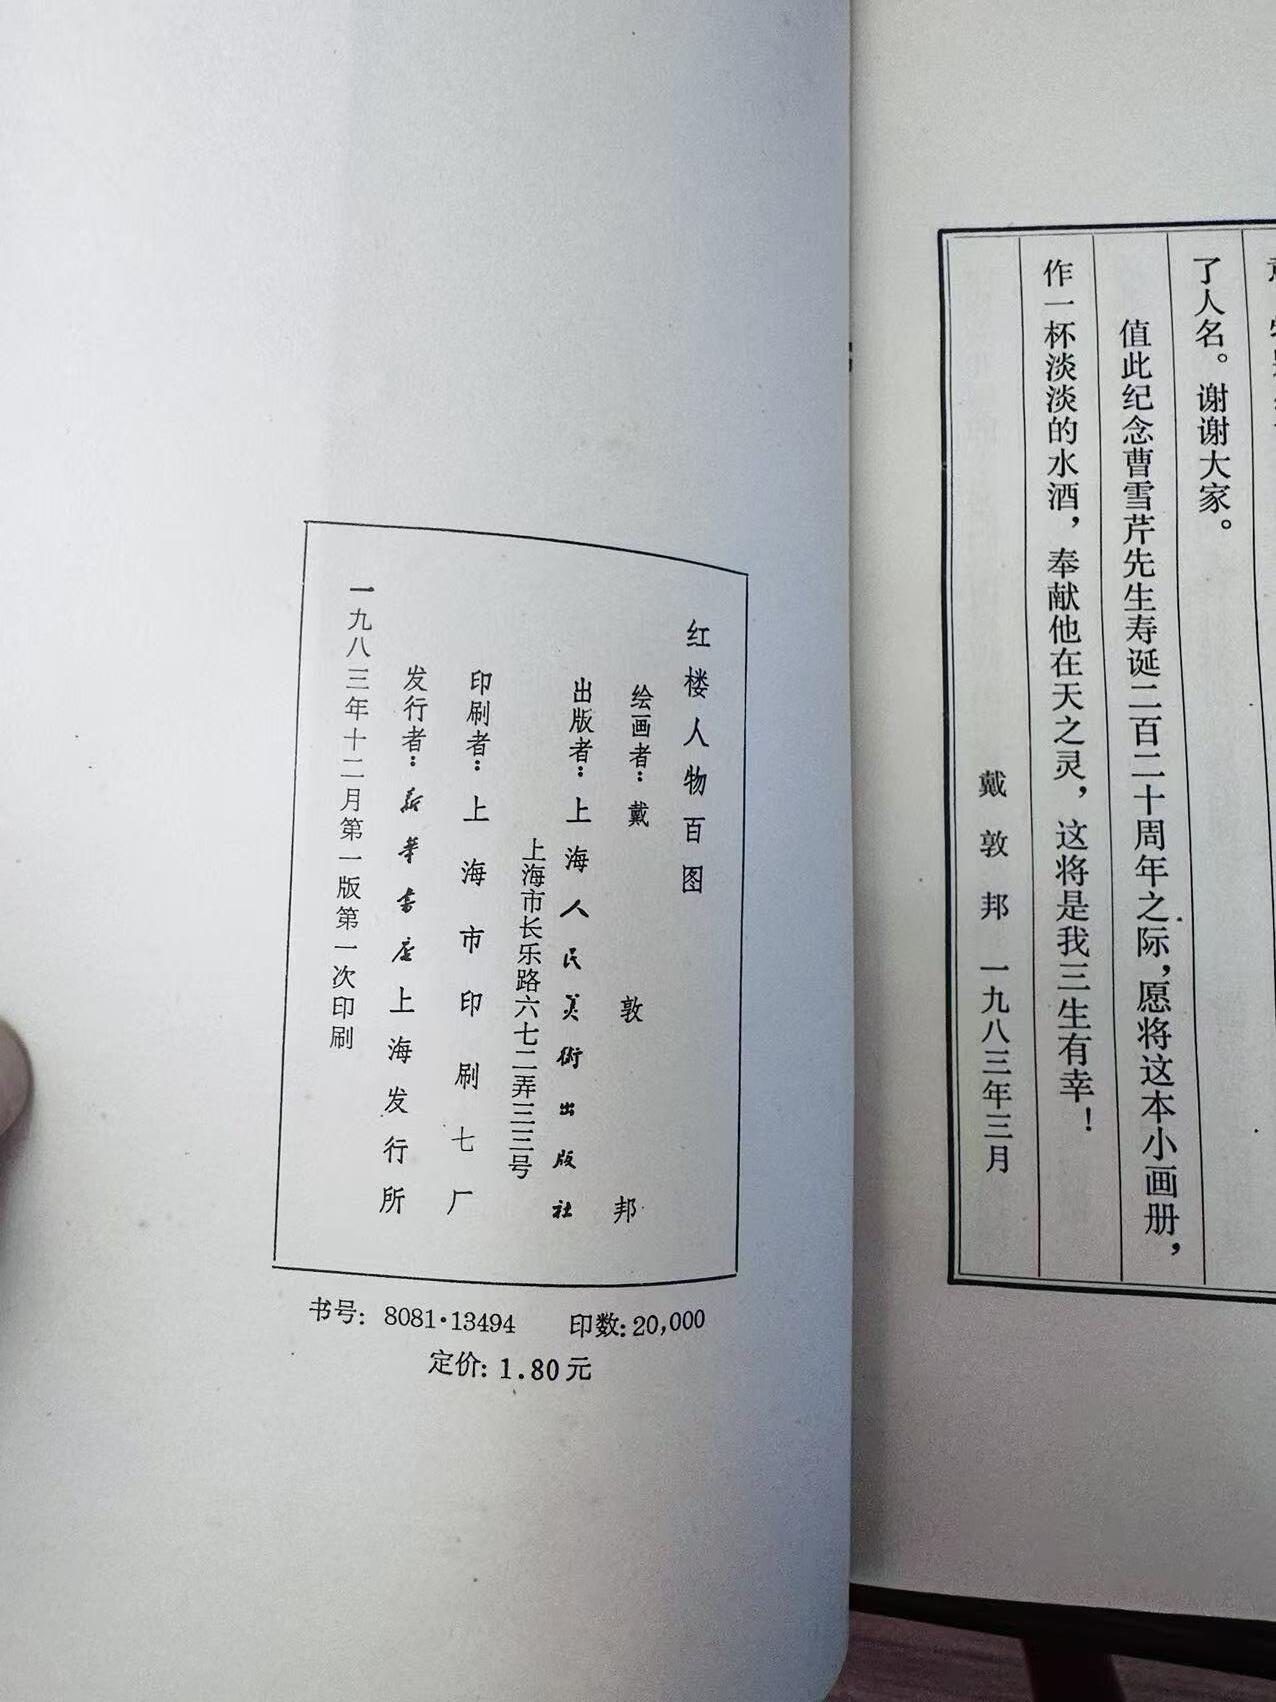 了人名。谢谢大家。
值此纪念曹雪芹先生寿诞二百二十周年之际，愿将这本小画册，
作一杯淡淡的水酒，奉献他在天之灵，这将是我三生有幸！
戴敦邦 一九八三年三月
红楼人物百图
绘画者：戴敦邦
出版者：上海人民美術出版社
上海市长乐路六七二弄三三号
印刷者：上海市印刷七厂
发行者：新华书店上海发行所
一九八三年十二月第一版第一次印刷
书号：8081·13494 印数：20,000
定价：1.80元